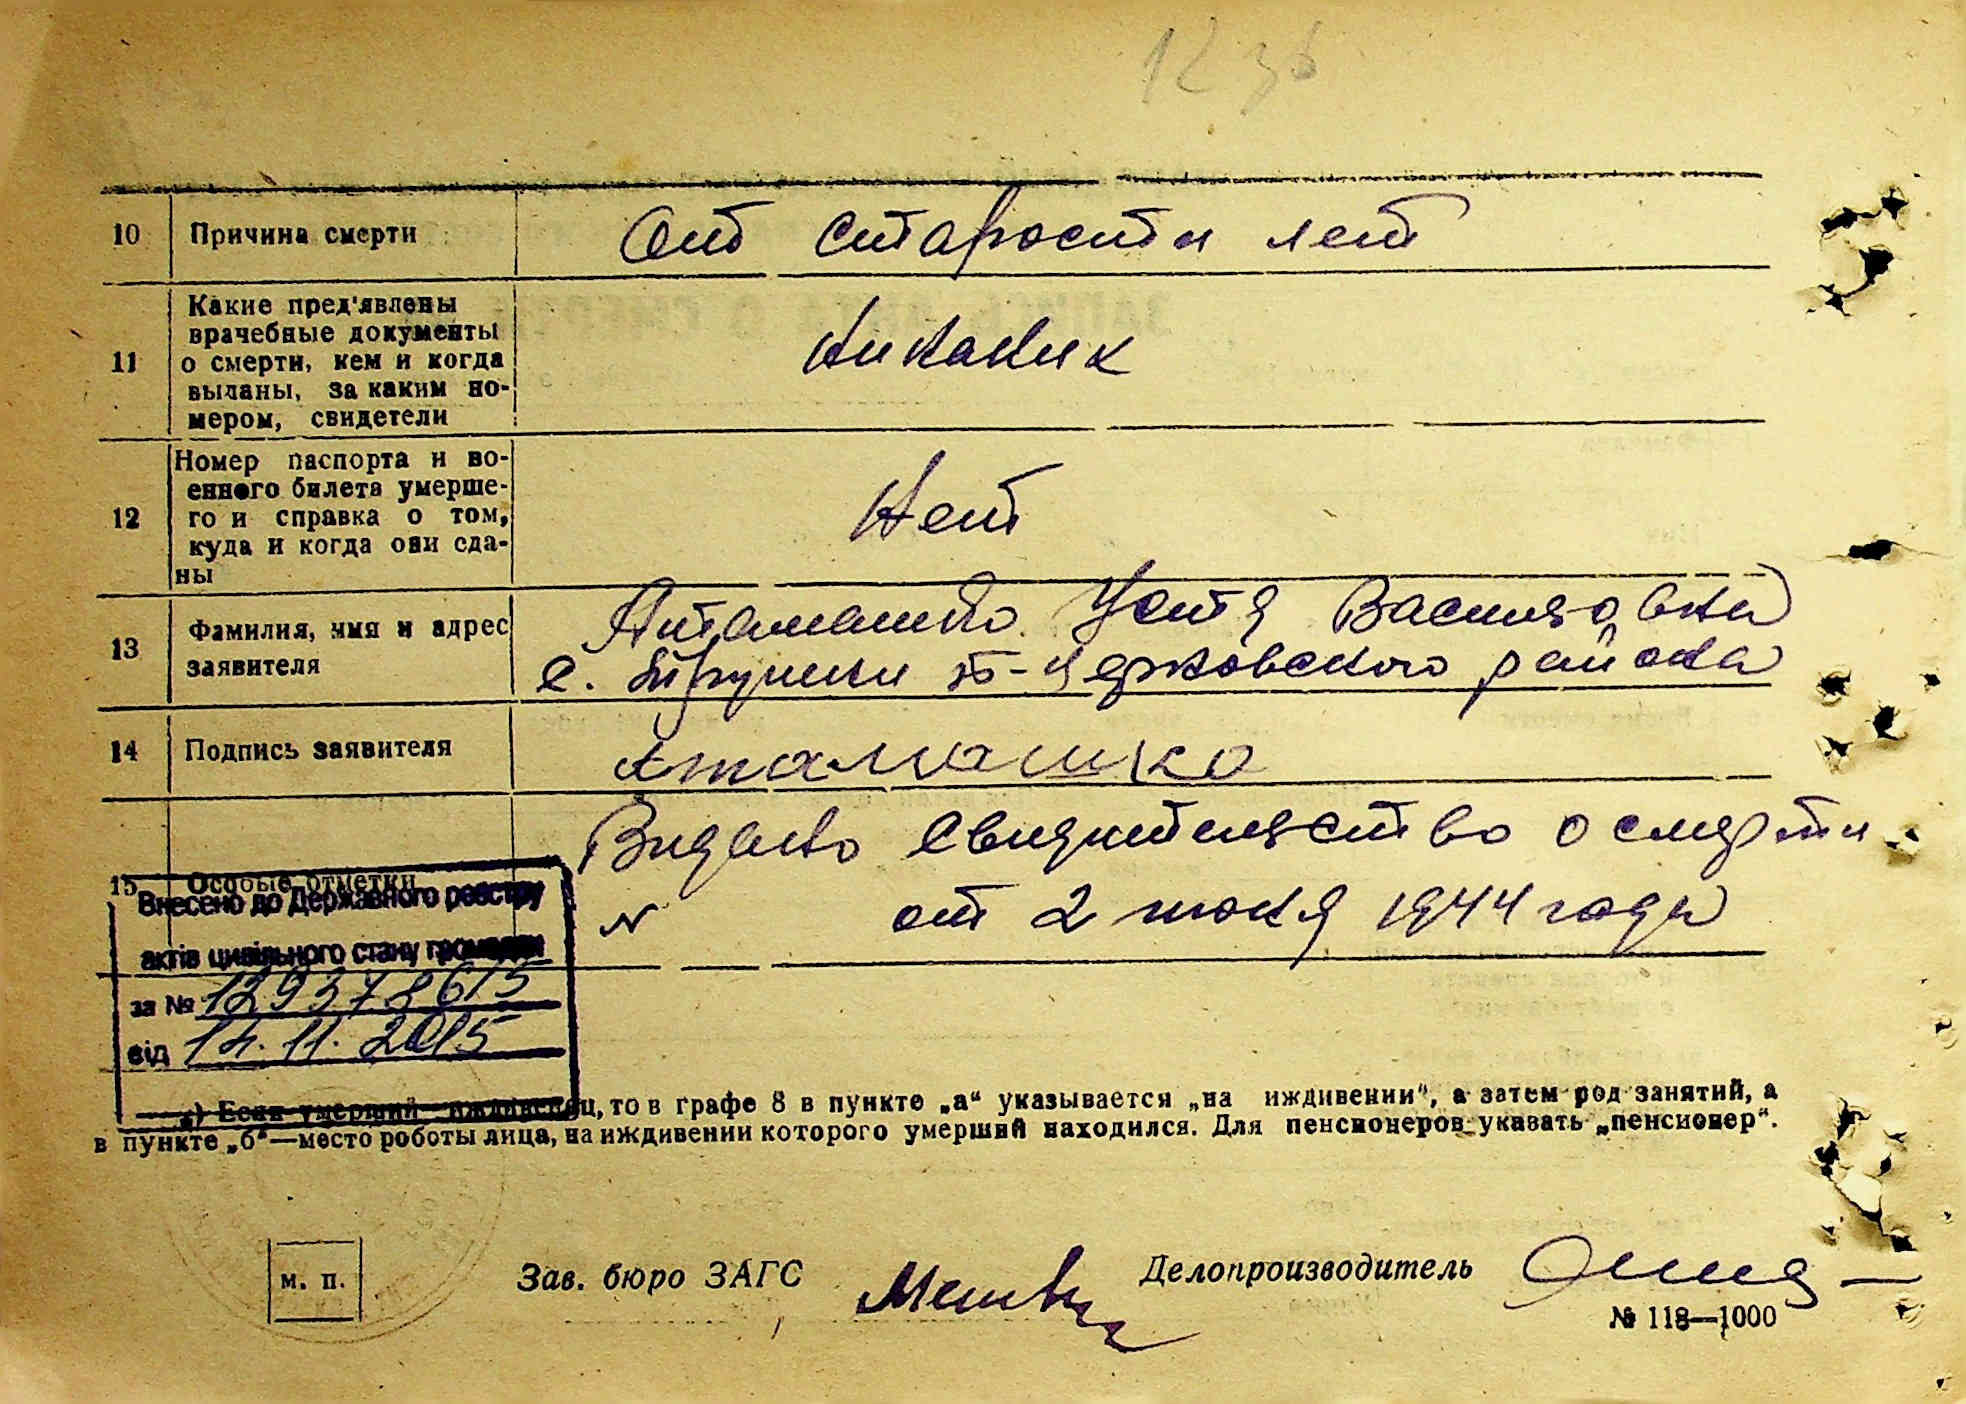 10 Причина смерти От старости лет
11 Какие пред'явлены
врачебные документы
о смерти, кем и когда
выданы, за каким но-
мером, свидетели
Никаких
12 Номер паспорта и во-
енного билета умерше-
го и справка о том,
куда и когда они сда-
ны
Нет
13 Фамилия, имя и адрес
заявителя
Устя Васильовна
с. района
14 Подпись заявителя Аталашко
15 Особые отметки
Видано свидительство о смерти
N от 2 июня 1944 года
Внесено до Державного реєстру
актів цивільного стану громадян
за № 129378615
від 14.11.2015
а) Если умерший иждивенец, то в графе 8 в пункте „а“ указывается „на иждивении“, а затем род занятий, а
в пункте „б“—место роботы лица, на иждивении которого умерший находился. Для пенсионеров указать „пенсионер“.
м. п.
Зав. бюро ЗАГС
Делопроизводитель
№ 118—1000